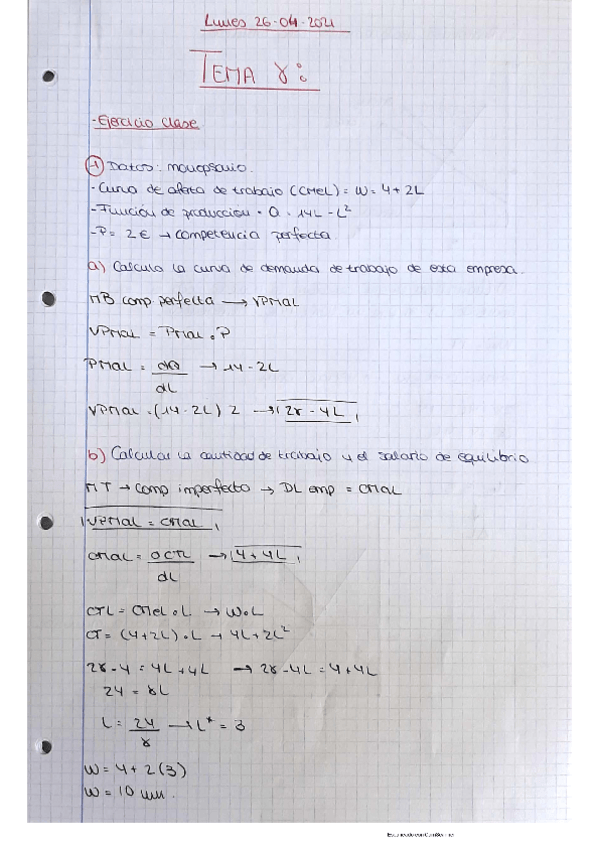 Lunes 26-04-2021
TEMA 8:
-Ejercicio clase
1) Datos: monopsonio.
-Curva de oferta de trabajo (CMeL) = W = 4+2L
-Función de producción = Q = 14L - L²
-P = 2€ → competencia perfecta.
a) Calcula la curva de demanda de trabajo de esta empresa.
MB comp perfecta → VPMaL
VPMaL = PMaL · P
PMaL = dQ/dL → 14-2L
VPMaL = (14-2L) 2 → 28 - 4L
b) Calcular la cantidad de trabajo y el salario de equilibrio
MT → comp imperfecto → DL emp = CMaL
VPMaL = CMaL
CMaL = dCTL/dL → 4+4L
CTL = CMeL · L → W·L
CT = (4+2L)·L → 4L+2L²
28-4 = 4L+4L → 28-4L = 4+4L
24 = 8L
L = 24/8 → L* = 3
W = 4+2(3)
W = 10 um.
Escaneado con CamScanner